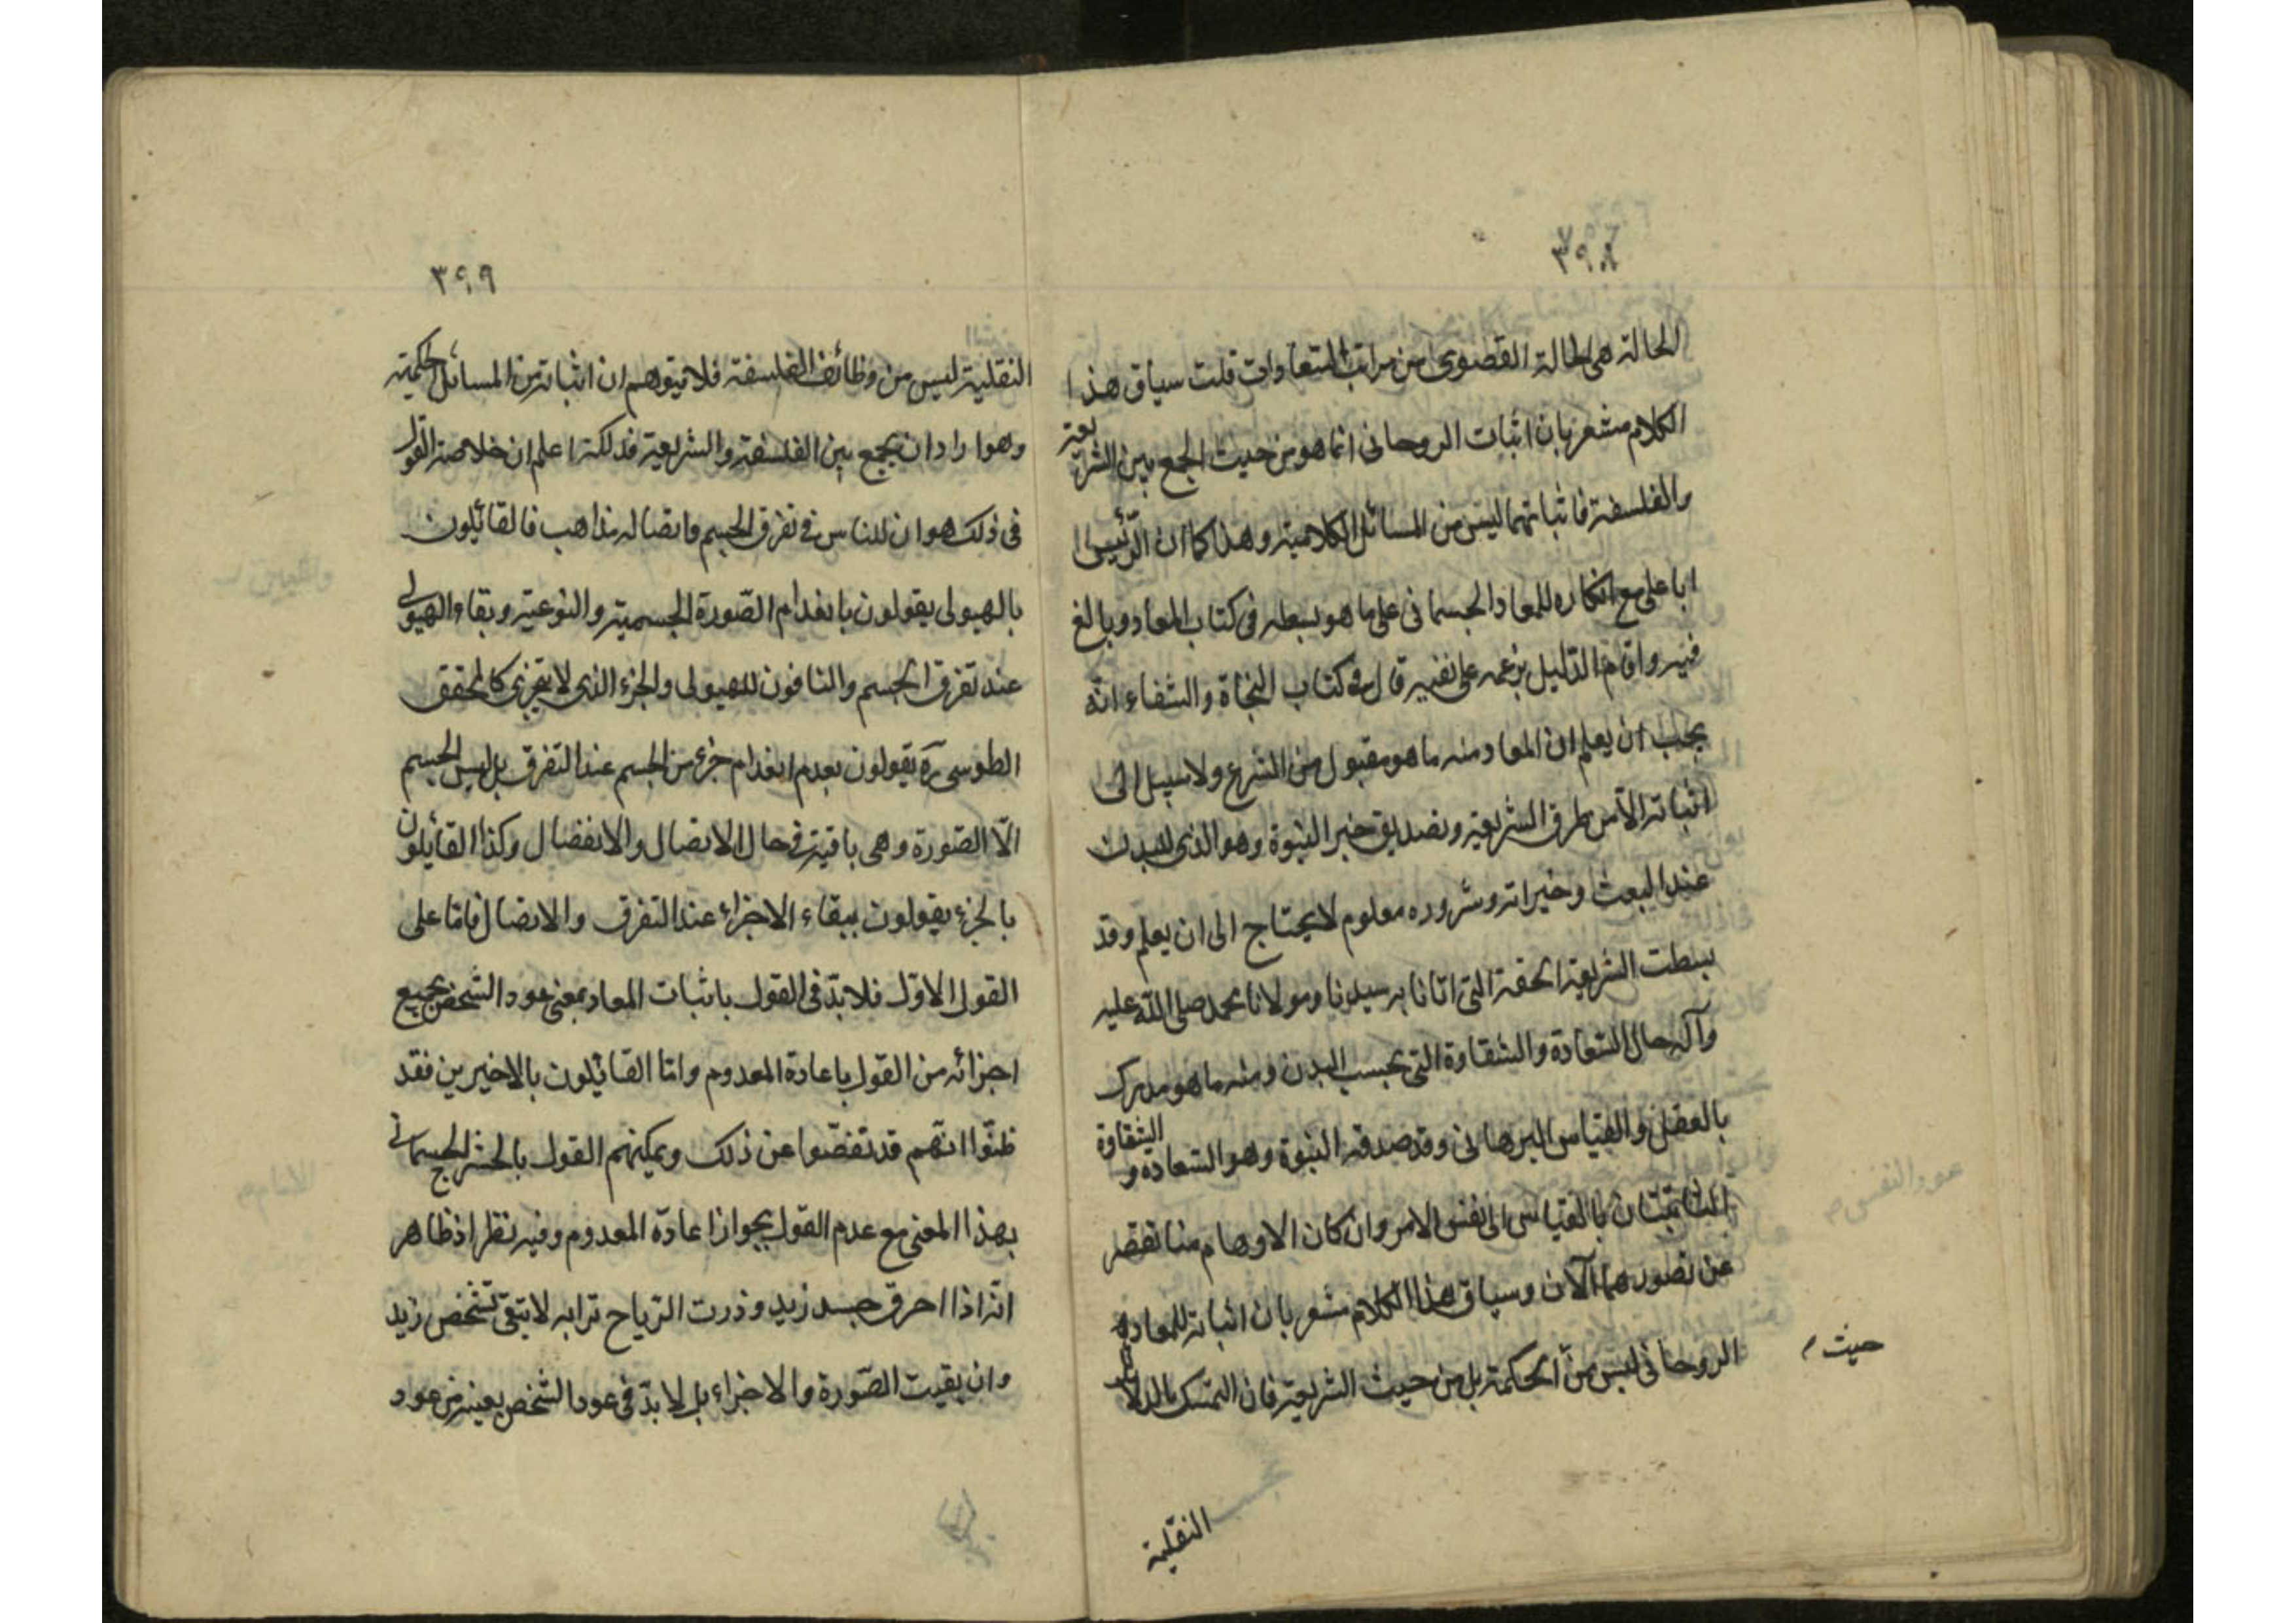 ٣٩٨
الحالة هى الحالة القصوى من مراتب السعادات قلت سياق هذا
الكلام مشعر بان اثبات الروحانى انما هو من حيث الجمع بين الشريعة
والفلسفة فاثباتهما ليس من المسائل الكلامية وهذا كما ان الرئيس
ابا على مع انكاره للمعاد الجسمانى على ما هو بسطه فى كتاب المعاد وبالغ
فيه واقام الدليل بزعمه على نفيه قال فى كتاب النجاة والشفاء انه
يجب ان يعلم ان المعاد منه ما هو مقبول من الشرع ولا سبيل الى
اثباته الا من طرق الشريعة وتصديق خبر النبوة وهو الذى للبدن
عند البعث وخيراته وشروره معلوم لا يحتاج الى ان يعلم وقد
بسطت الشريعة الحقة التى اتانا به سيدنا ومولانا محمد صلى الله عليه
وآله حال السعادة والشقاوة التى بحسب البدن ومنه ما هو مدرك
بالعقل والقياس البرهانى وقد صدقه النبوة وهو السعادة و الشقاوة
الثابتتان بالقياس الى نفس الامر وان كان الاوهام منا تقصر
عن تصورهما الآن وسياق هذا الكلام مشعر بان اثباته للمعاد
الروحانى ليس من الحكمة بل من حيث الشريعة فان التمسك بالدلائل
حيث م
النقلية
٣٩٩
النقلية ليس من وظائف الفلسفة فلا يتوهم ان اثباته من المسائل الحكمية
وهو اراد ان يجمع بين الفلسفة والشريعة فذلكة اعلم ان خلاصة القول
فى ذلك هو ان للناس فى تفرق الجسم واتصاله مذاهب فالقائلون
بالهيولى يقولون بانعدام الصورة الجسمية والنوعية وبقاء الهيولى
عند تفرق الجسم والنافون للهيولى والجزء الذى لا يتجزى كالمحقق
الطوسى ره يقولون بعدم انعدام جزء من الجسم عند التفرق بل ليس الجسم
الا الصورة وهى باقية فى حال الاتصال والانفصال وكذا القائلون
بالجزء يقولون ببقاء الاجزاء عند التفرق والاتصال فاما على
القول الاول فلا بد فى القول باثبات المعاد بمعنى عود الشخص بجميع
اجزائه من القول باعادة المعدوم واما القائلون بالاخيرين فقد
ظنوا انهم قد تفصوا عن ذلك ويمكنهم القول بالحشر الجسمانى
بهذا المعنى مع عدم القول بجواز اعادة المعدوم وفيه نظر اذ ظاهر
انه اذا احرق جسد زيد وذرت الرياح ترابه لا يبقى تشخص زيد
وان بقيت الصورة والاجزاء بل لا بد فى عود الشخص بعينه من عود